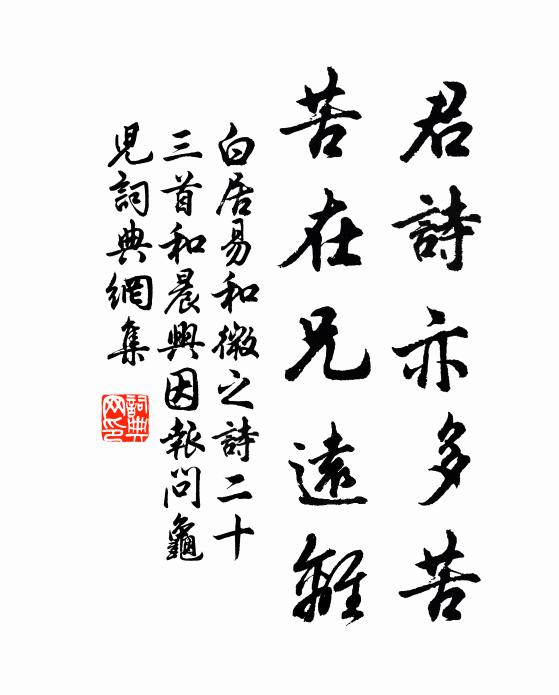 君詩亦多苦
苦在兄遠離
白居易和微之詩二十
三首和晨興因報問龜
兒詞典網集
詞典
网印